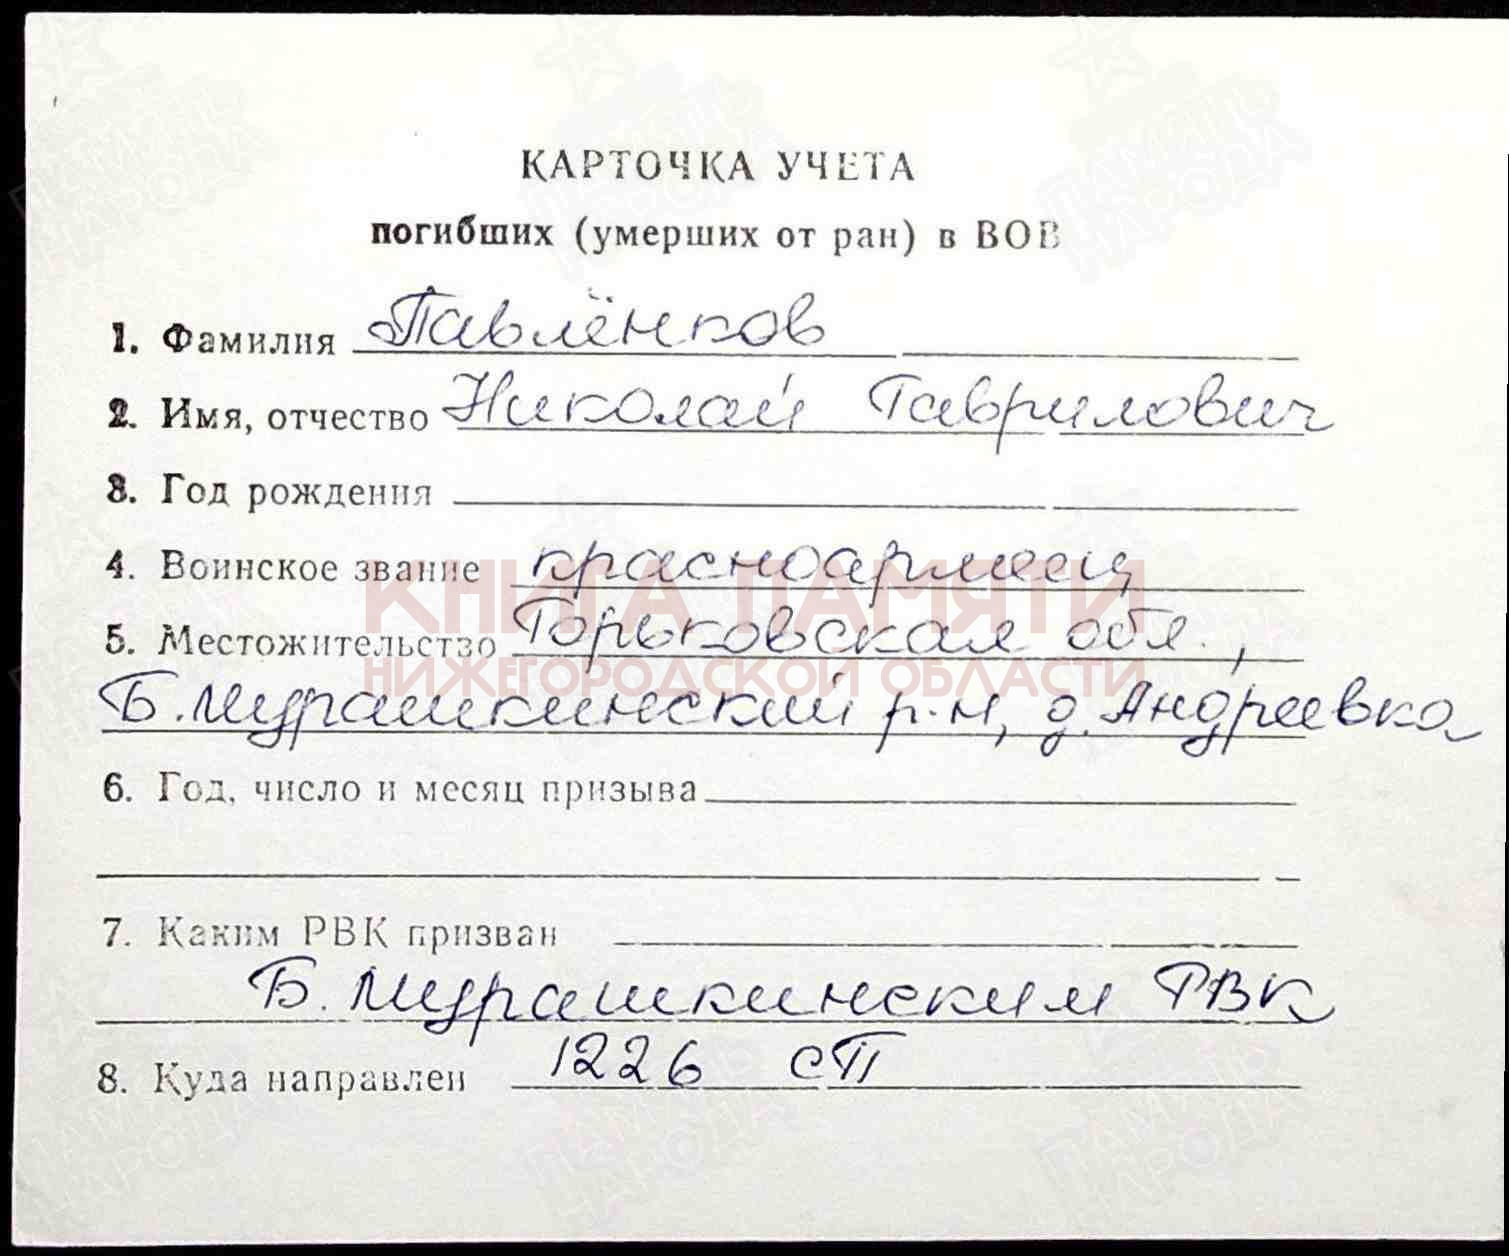 КАРТОЧКА УЧЕТА
погибших (умерших от ран) в ВОВ
1. Фамилия Павлёнков
2. Имя, отчество Николай Гаврилович
3. Год рождения
4. Воинское звание красноармеец
КНИГА ПАМЯТИ
5. Местожительство Горьковская обл.,
НИЖЕГОРОДСКОЙ ОБЛАСТИ
Б. Мурашкинский р-н, д. Андреевка
6. Год, число и месяц призыва
7. Каким РВК призван
Б. Мурашкинским РВК
8. Куда направлен 1226 сП
ПАМЯТЬ НАРОДА